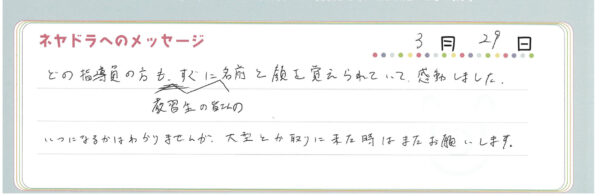 ネヤドラへのメッセージ
3月29日
どの指導員の方も、すぐに名前と顔を覚えられていて、感動しました。
教習生の皆さんの
いつになるかはわかりませんが、大型とか取りに来た時はまたお願いします。